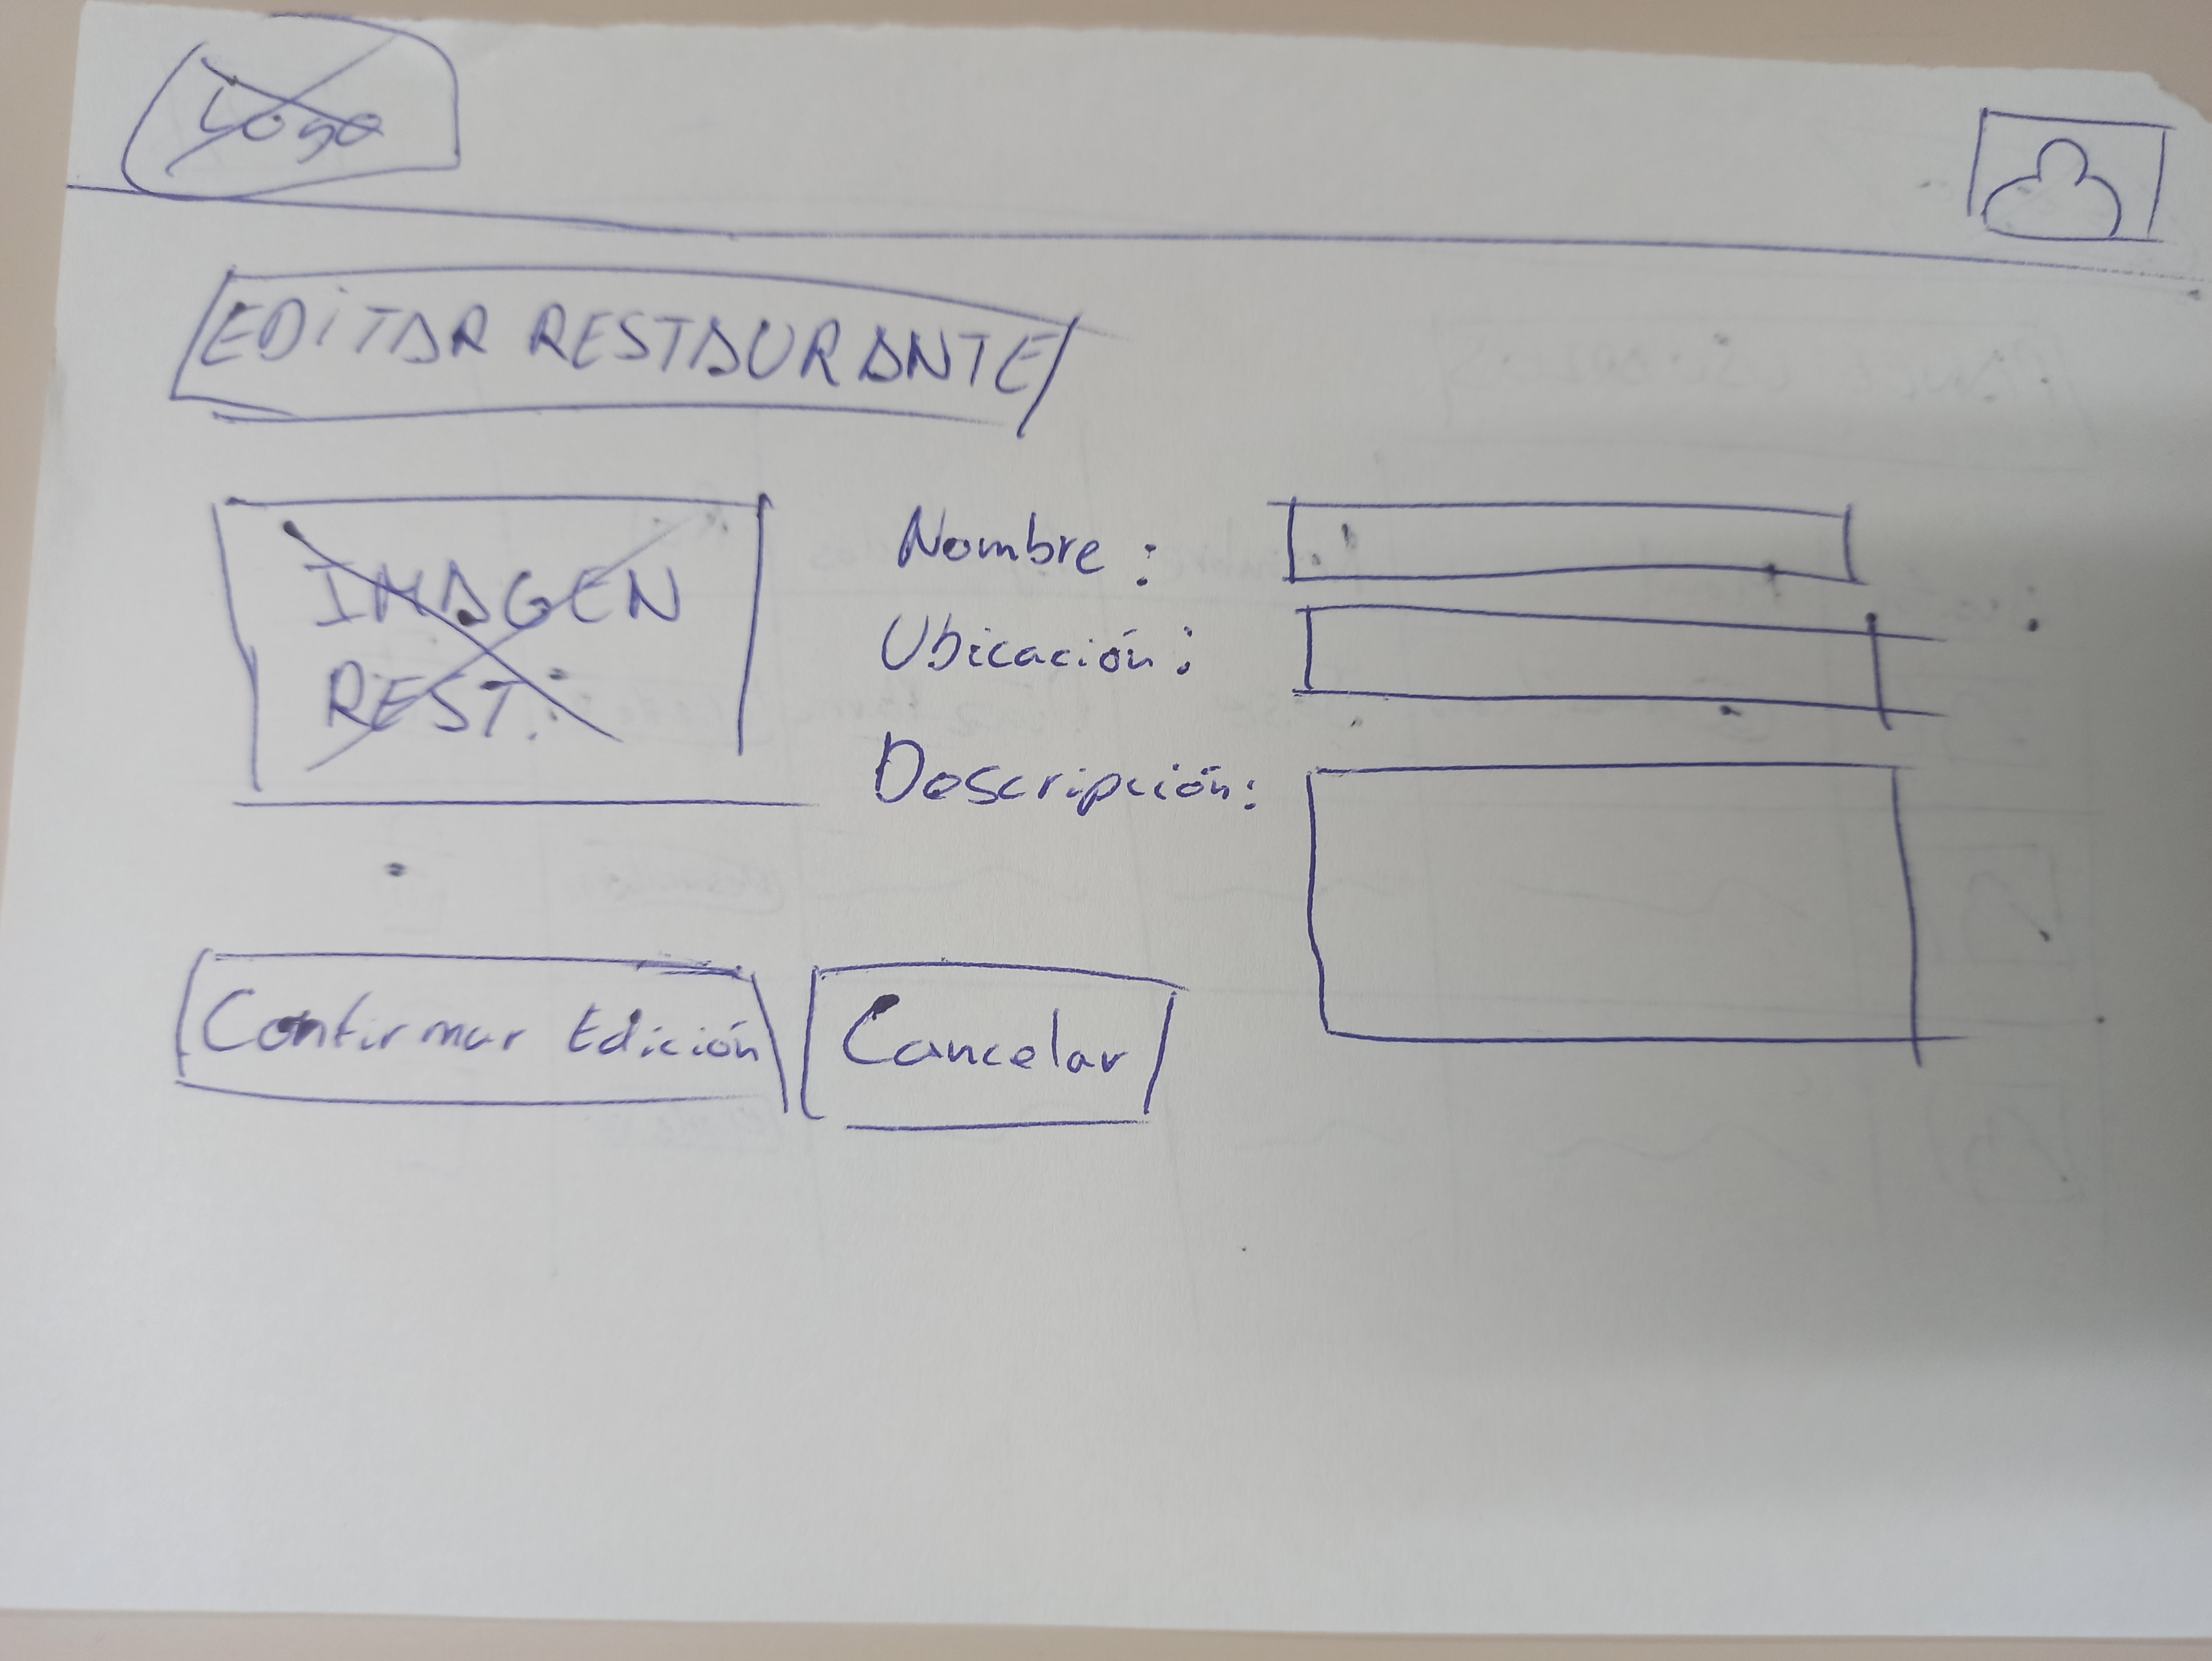 Logo
EDITAR RESTAURANTE
IMAGEN
REST.
Nombre :
Ubicación :
Descripción:
Confirmar Edición
Cancelar